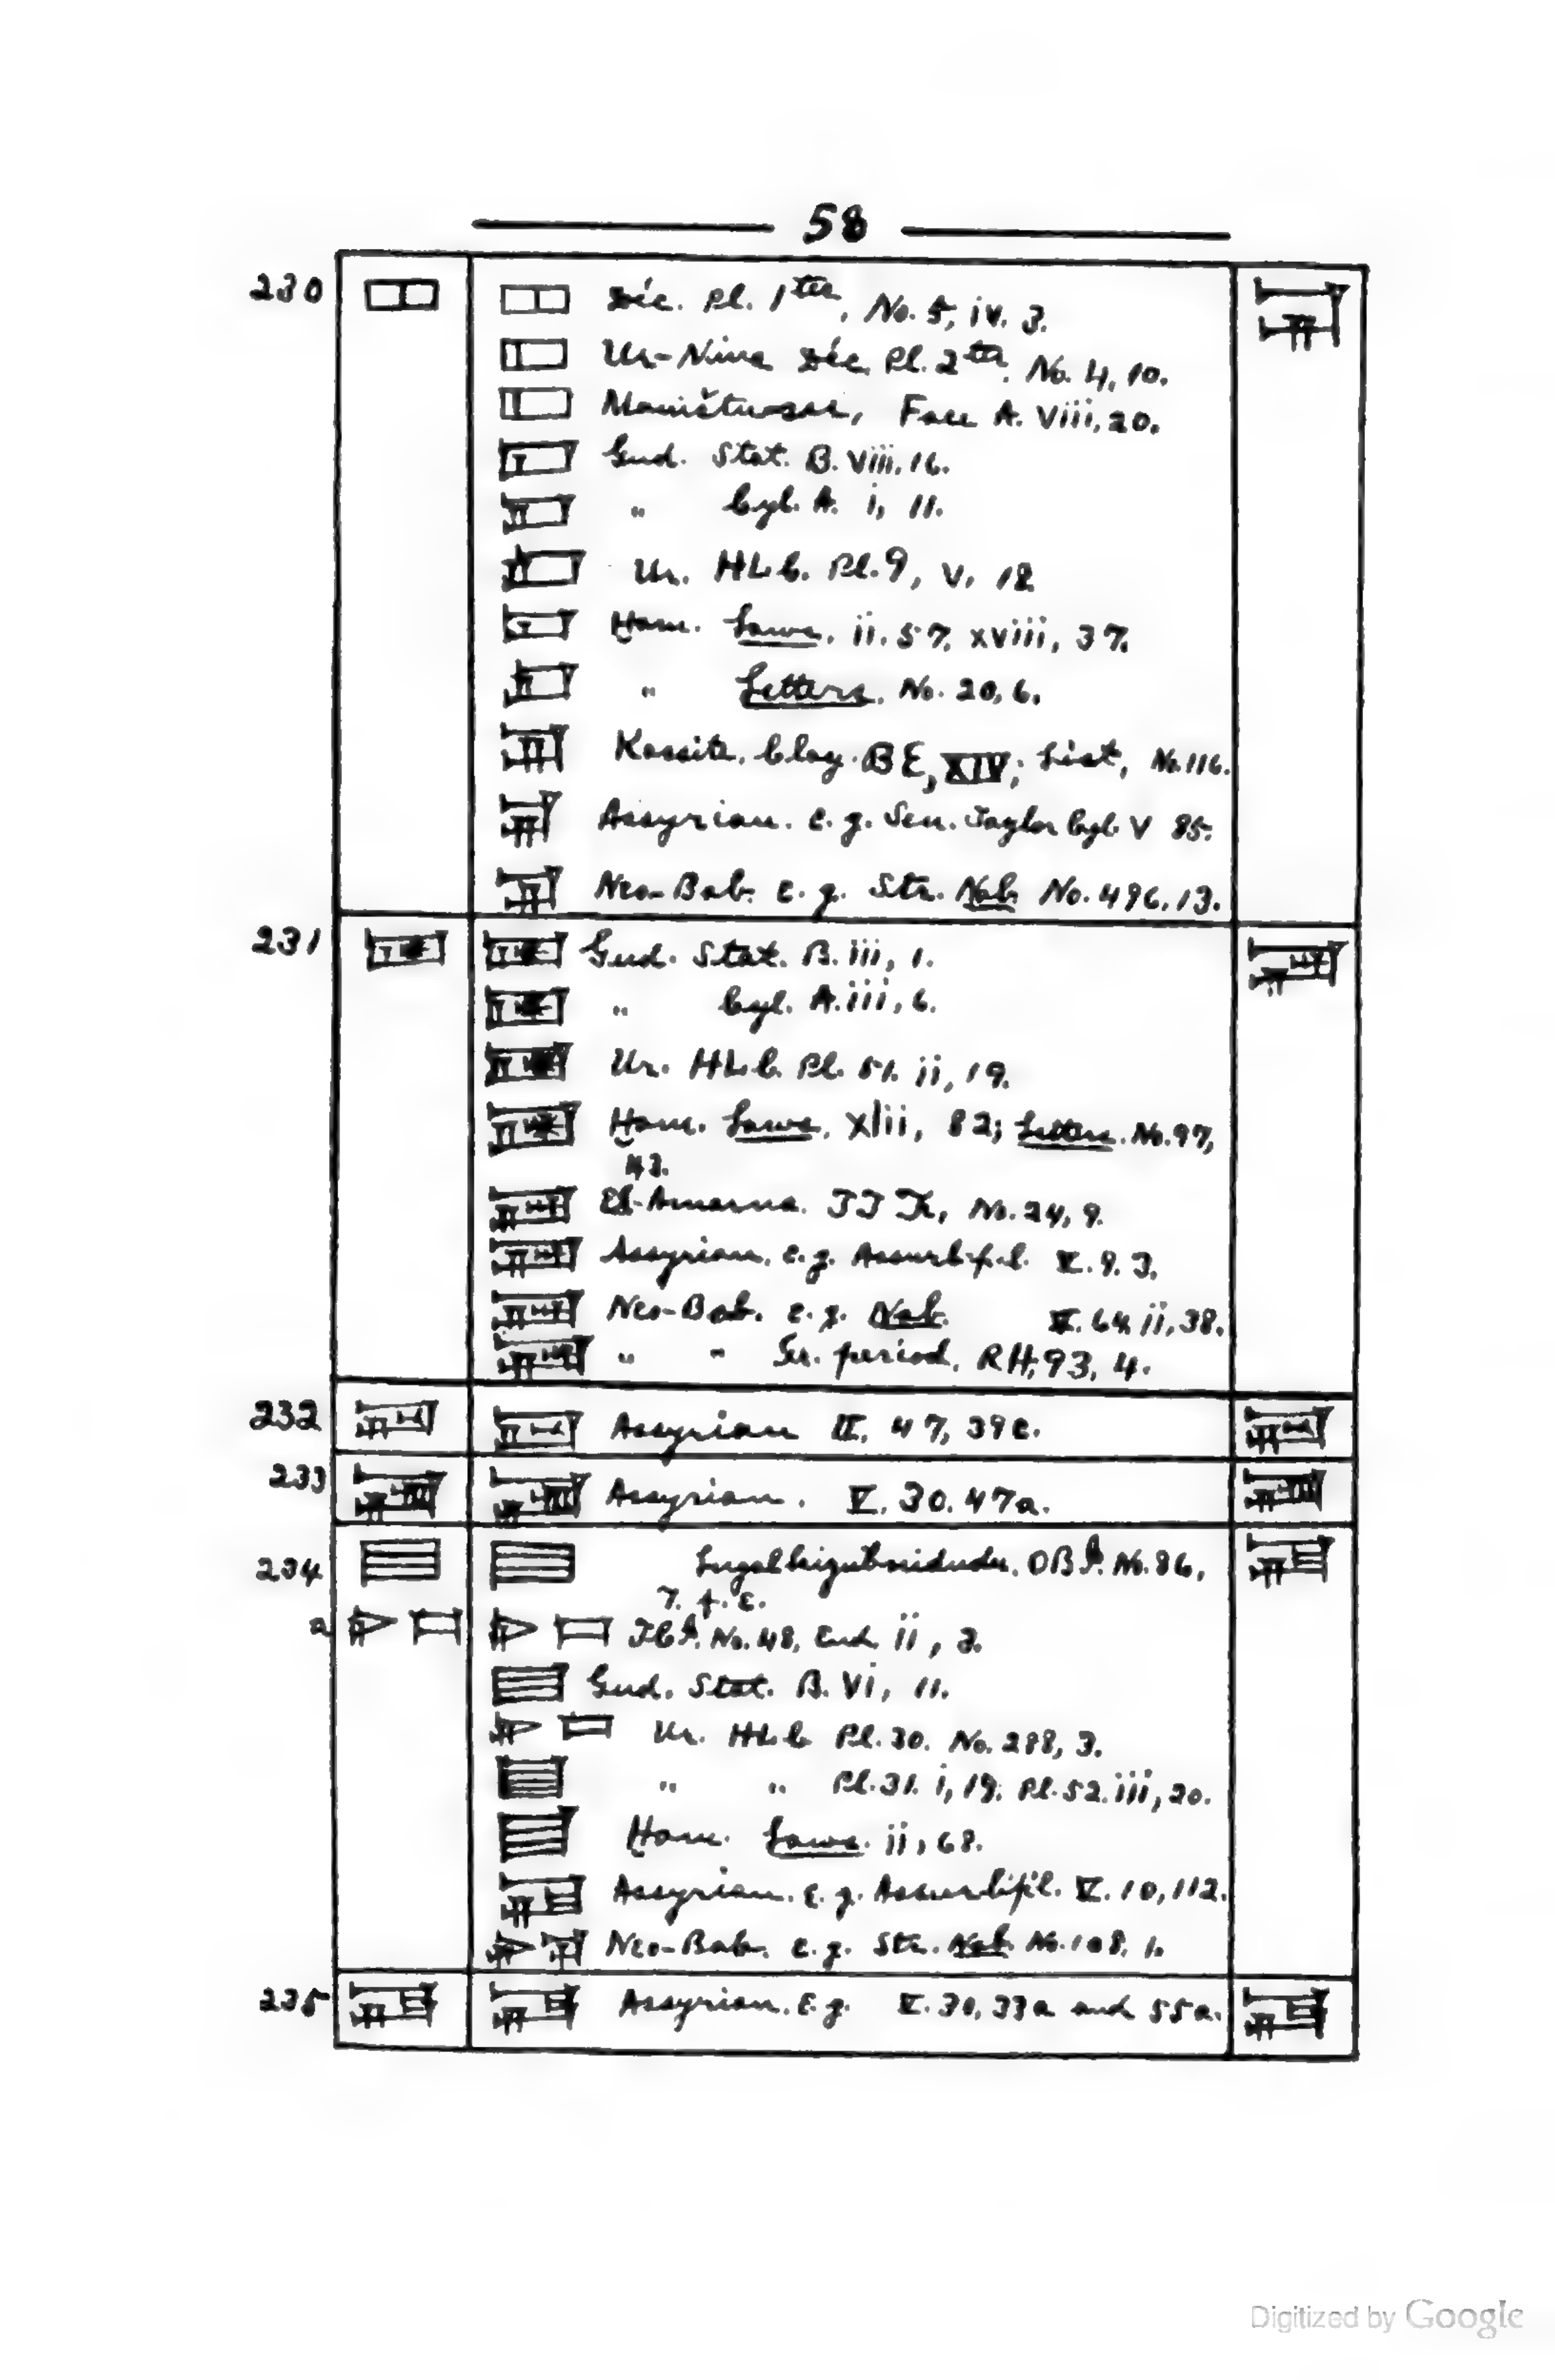 58
230 Déc. Pl. 1ter, No. 5, iv. 3.
Ur-Nina Déc. Pl. 2ter. No. 4, 10.
Maništu-, Face A. Viii, 20.
Gud. Stat. B. Viii. 16.
" Cyl. A. i, 11.
Ur. HLC. Pl. 9, V. 12
Ḫam. Laws. ii. 57, xviii, 37.
" Letters. No. 20, 6.
Kassite. Clay. BE, XIV; List, No. 116.
Assyrian. e. g. Sen. Taylor Cyl. V 85.
Neo-Bab. e. g. Str. Nab. No. 496, 13.
231 Gud. Stat. B. iii, 1.
" Cyl. A. iii, 6.
Ur. HLC. Pl. 51. ii, 19.
Ḫam. Laws. Xlii, 82; Letters. No. 97,
43.
El-Amarna. No. 24, 9.
Assyrian. e. g. Assurb-p-l. V. 9. 3.
Neo-Bab. e. g. Nab. V. 64 ii, 38.
" " period, RH, 93, 4.
232 Assyrian II. 47, 39c.
233 Assyrian. V. 30. 47a.
234 OBI. No. 86,
7. f. c.
a No. 48, End. ii, 2.
Gud. Stat. B. Vi, 11.
Ur. HLC Pl. 30. No. 288, 3.
" " Pl. 31. i, 19. Pl. 52. iii, 20.
Ḫam. Laws. ii, 68.
Assyrian. e. g. Assurbip'l. V. 10, 112.
Neo-Bab. e. g. Str. Nab. No. 108, 1.
235 Assyrian. E. g. V. 30, 33a and 55a.
Digitized by Google